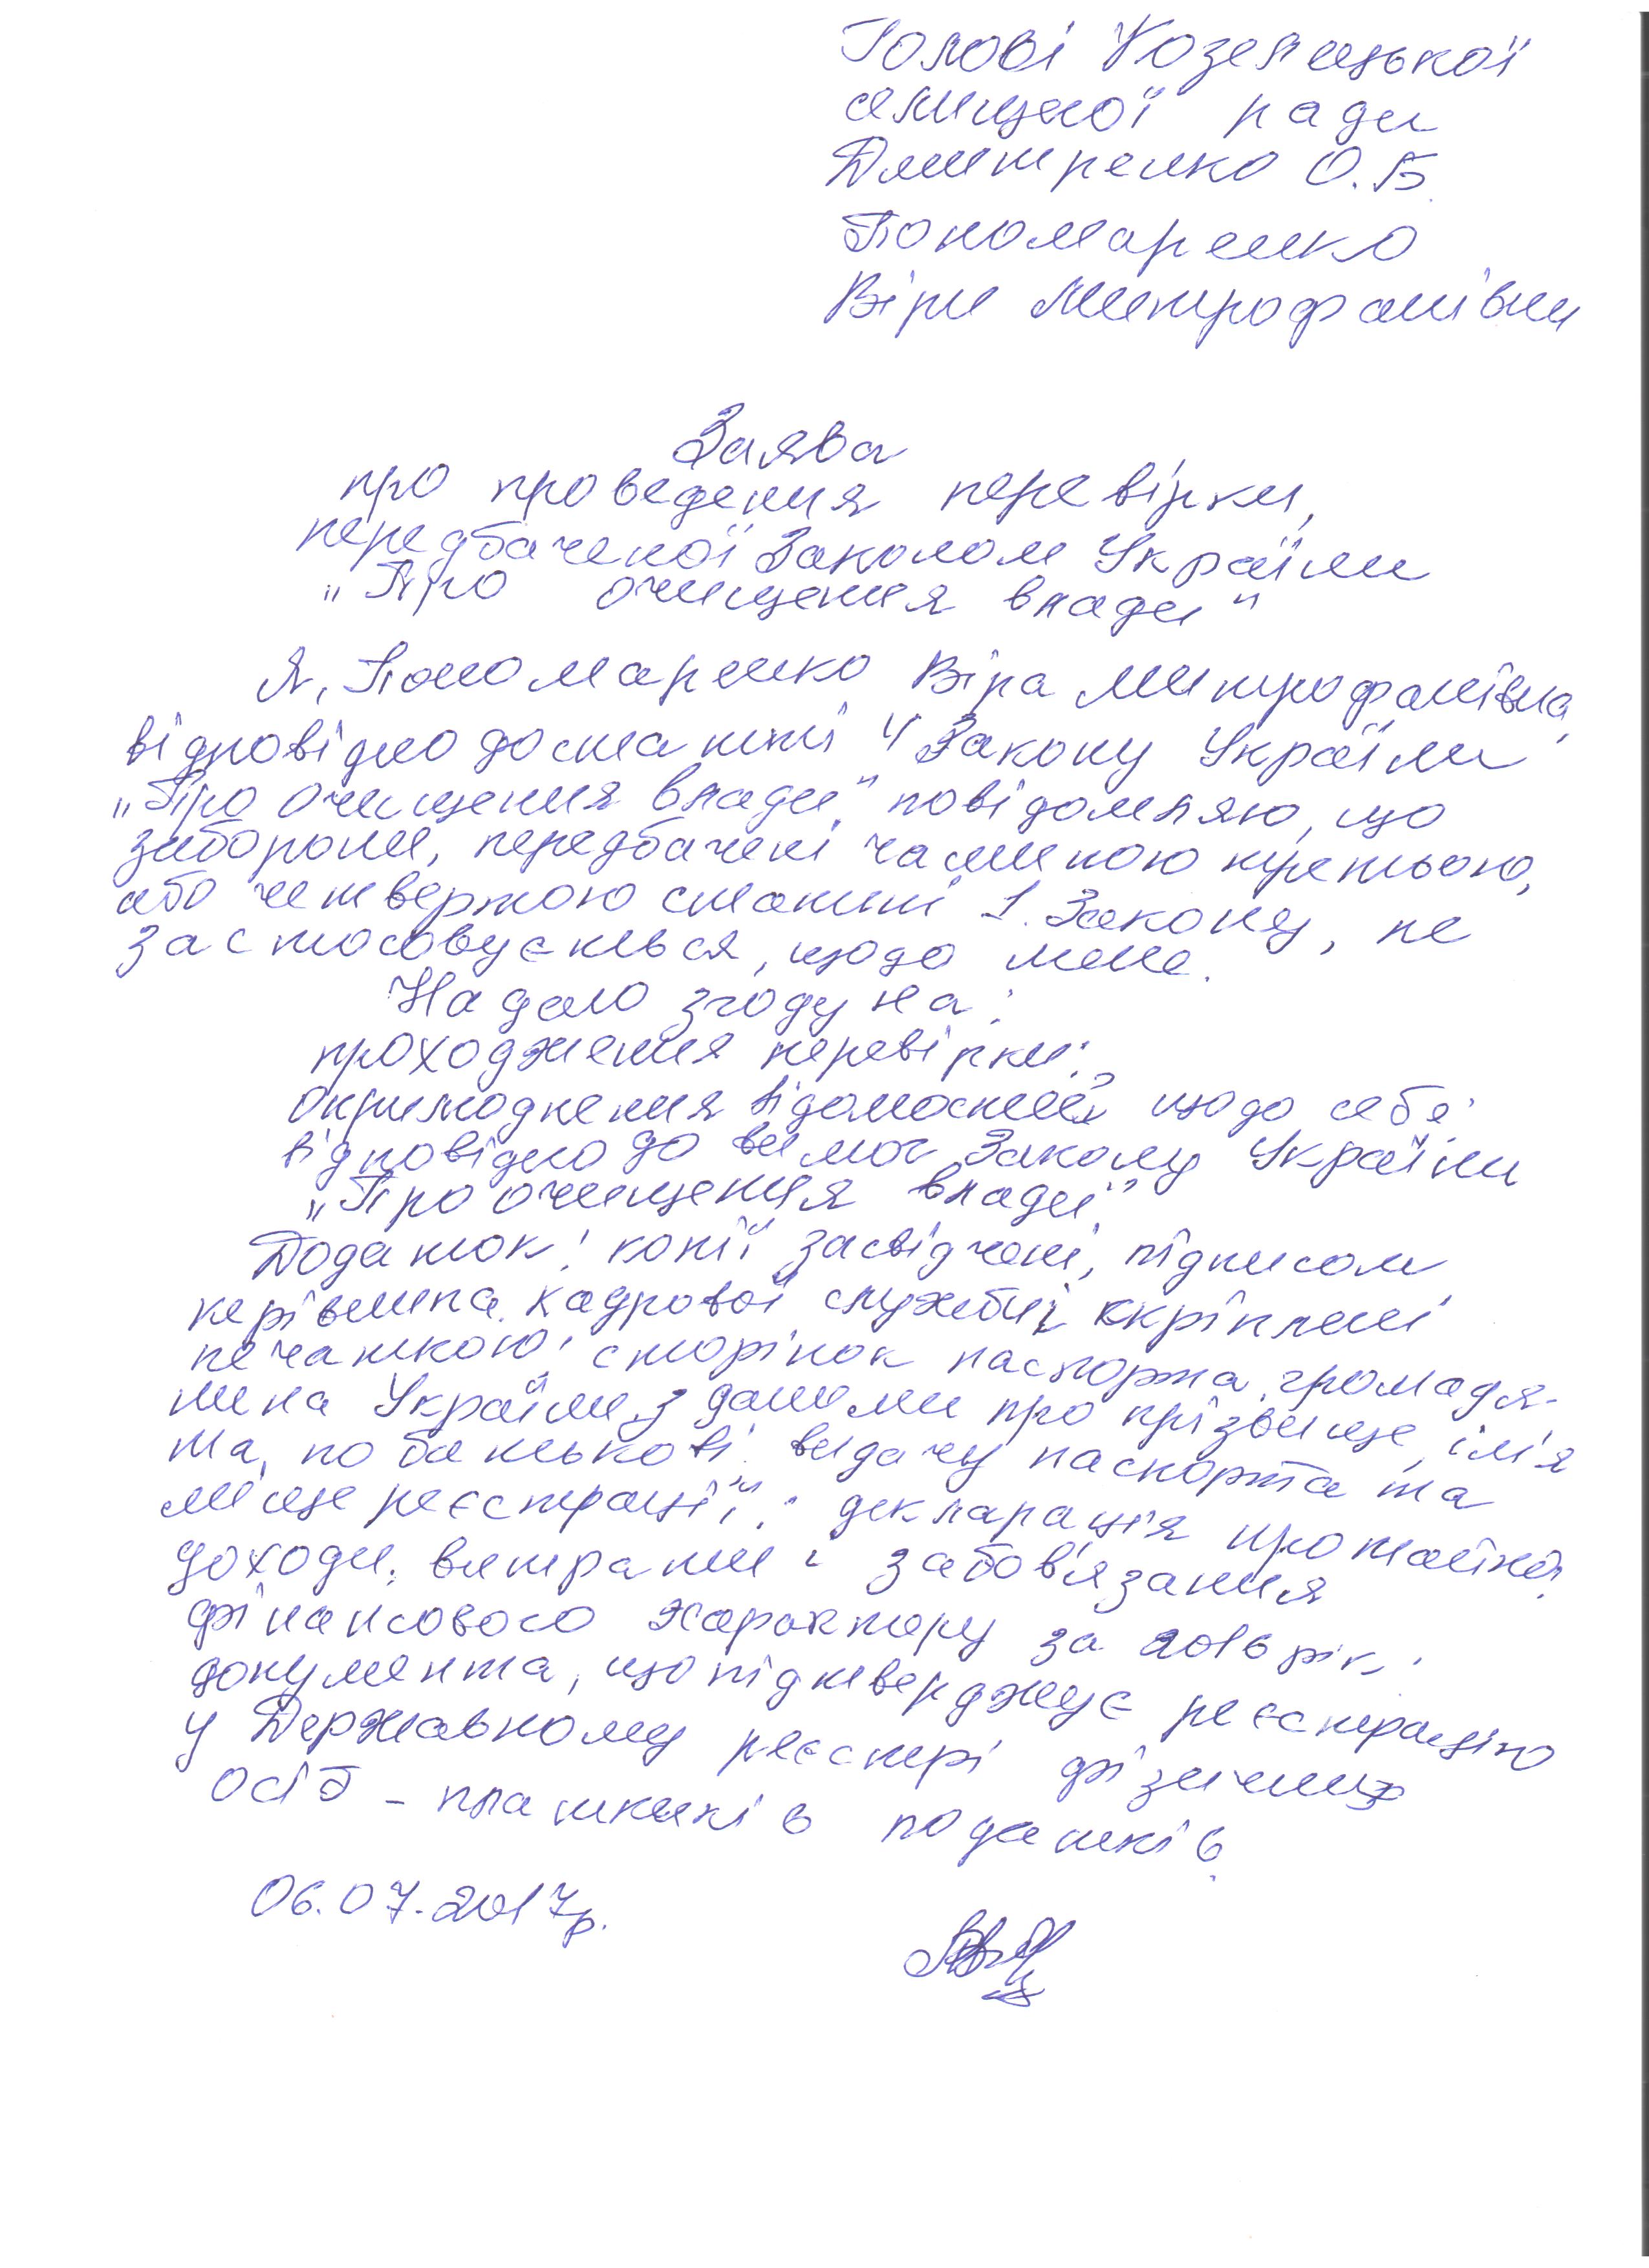 Голові Козелецької
селищної ради
Дмитренко О.Б.
Пономаренко
Віри Митрофанівни
Заява
про проведення перевірки,
передбаченої Законом України
„Про очищення влади"
Я, Пономаренко Віра Митрофанівна,
відповідно до статті 4 Закону України
„Про очищення влади" повідомляю, що
заборони, передбачені частиною третьою,
або четвертою статті 1. Закону, не
застосовується, щодо мене.
Надаю згоду на:
проходження перевірки;
оприлюднення відомостей щодо себе
відповідно до вимог Закону України
„Про очищення влади"
Додаток: копії засвідчені, підписом
керівника кадрової служби і скріплені
печаткою: сторінок паспорта громадя-
нина України з даними про прізвище, ім'я
та, по батькові видачу паспорта та
місце реєстрації; декларація про майно,
доходи, витрати і забов'язання
фінансового характеру за 2016 рік;
документа, що підтверджує реєстрацію
у Державному реєстрі фізичних
осіб - платників податків.
06.07.2017р.